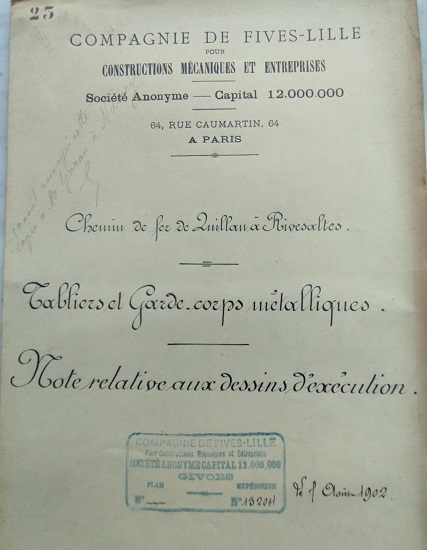 23
COMPAGNIE DE FIVES-LILLE
POUR
CONSTRUCTIONS MÉCANIQUES ET ENTREPRISES
Société Anonyme — Capital 12.000.000
64, RUE CAUMARTIN, 64
A PARIS
Chemin de fer de Quillan à Rivesaltes.
Tabliers et Garde-corps métalliques.
Note relative aux dessins d'exécution.
COMPAGNIE DE FIVES-LILLE
Pour Constructions Mécaniques et Entreprises
SOCIÉTÉ ANONYME CAPITAL 12.000.000
GIVORS
PLAN EXPÉDITION
N° N° 15204
Août 1902.